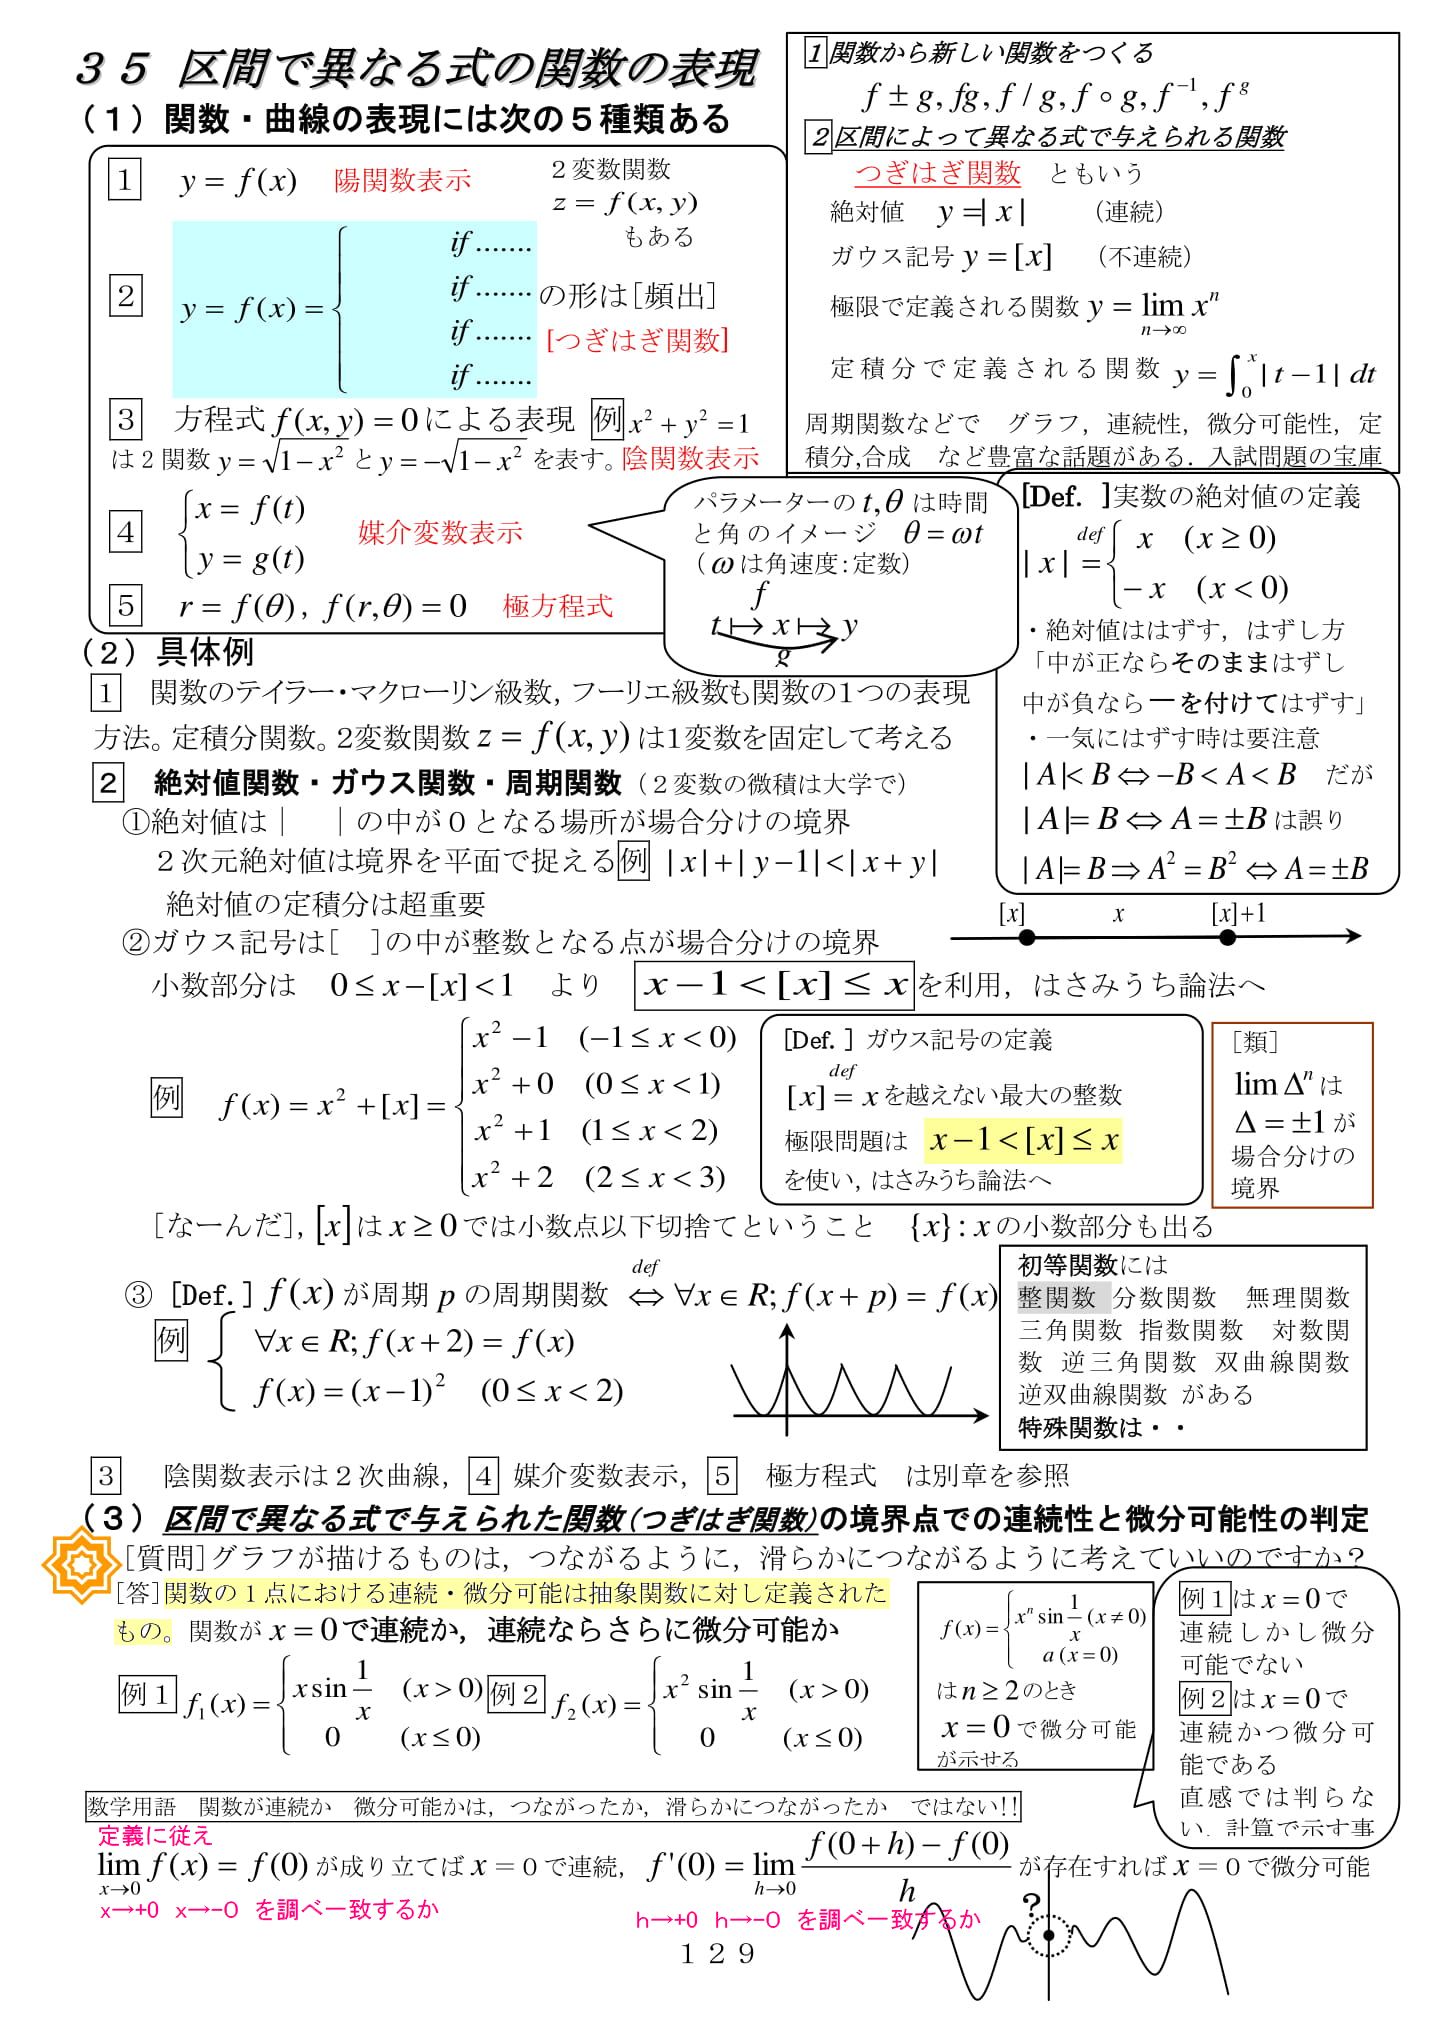 ３５ 区間で異なる式の関数の表現
（１）関数・曲線の表現には次の５種類ある
1 y = f(x) 陽関数表示
２変数関数
z = f(x, y)
もある
2 y = f(x) = { if ....... の形は[頻出]
if .......
if ....... [つぎはぎ関数]
if .......
3 方程式 f(x, y) = 0 による表現 例 x² + y² = 1
は２関数 y = √(1 − x²) と y = −√(1 − x²) を表す。陰関数表示
4 { x = f(t)
y = g(t) 媒介変数表示
5 r = f(θ), f(r,θ) = 0 極方程式
1 関数から新しい関数をつくる
f ± g, fg, f / g, f ∘ g, f⁻¹, f^g
2 区間によって異なる式で与えられる関数
つぎはぎ関数 ともいう
絶対値 y =| x | （連続）
ガウス記号 y = [x] （不連続）
極限で定義される関数 y = lim_{n→∞} xⁿ
定積分で定義される関数 y = ∫₀ˣ | t − 1 | dt
周期関数などで グラフ，連続性，微分可能性，定
積分,合成 など豊富な話題がある．入試問題の宝庫
パラメーターの t,θ は時間
と角のイメージ θ = ωt
（ω は角速度：定数）
f
t ↦ x ↦ y
g
[Def. ]実数の絶対値の定義
| x | =^{def} { x (x ≥ 0)
− x (x < 0)
・絶対値ははずす，はずし方
「中が正ならそのままはずし
中が負なら ー を付けてはずす」
・一気にはずす時は要注意
| A |< B ⇔ −B < A < B だが
| A |= B ⇔ A = ±B は誤り
| A |= B ⇒ A² = B² ⇔ A = ±B
（２）具体例
1 関数のテイラー・マクローリン級数，フーリエ級数も関数の１つの表現
方法。定積分関数。２変数関数 z = f(x, y) は１変数を固定して考える
2 絶対値関数・ガウス関数・周期関数（２変数の微積は大学で）
①絶対値は｜ ｜の中が０となる場所が場合分けの境界
２次元絶対値は境界を平面で捉える 例 | x | + | y − 1 | < | x + y |
絶対値の定積分は超重要
②ガウス記号は[ ]の中が整数となる点が場合分けの境界
[x] x [x]+1
小数部分は 0 ≤ x − [x] < 1 より x − 1 < [x] ≤ x を利用，はさみうち論法へ
例 f(x) = x² + [x] = { x² − 1 (−1 ≤ x < 0)
x² + 0 (0 ≤ x < 1)
x² + 1 (1 ≤ x < 2)
x² + 2 (2 ≤ x < 3)
[Def. ] ガウス記号の定義
[x] =^{def} x を越えない最大の整数
極限問題は x − 1 < [x] ≤ x
を使い，はさみうち論法へ
［類］
lim Δⁿ は
Δ = ±1 が
場合分けの
境界
［なーんだ］，[x] は x ≥ 0 では小数点以下切捨てということ {x} : x の小数部分も出る
③ [Def. ] f(x) が周期 p の周期関数 ⇔^{def} ∀x ∈ R; f(x + p) = f(x)
例 { ∀x ∈ R; f(x + 2) = f(x)
f(x) = (x − 1)² (0 ≤ x < 2)
初等関数には
整関数 分数関数 無理関数
三角関数 指数関数 対数関
数 逆三角関数 双曲線関数
逆双曲線関数 がある
特殊関数は・・
3 陰関数表示は２次曲線， 4 媒介変数表示， 5 極方程式 は別章を参照
（３）区間で異なる式で与えられた関数（つぎはぎ関数）の境界点での連続性と微分可能性の判定
［質問］グラフが描けるものは，つながるように，滑らかにつながるように考えていいのですか？
［答］関数の１点における連続・微分可能は抽象関数に対し定義された
もの。関数が x = 0 で連続か，連続ならさらに微分可能か
例１ f₁(x) = { x sin 1/x (x > 0)
0 (x ≤ 0)
例２ f₂(x) = { x² sin 1/x (x > 0)
0 (x ≤ 0)
f(x) = { xⁿ sin 1/x (x ≠ 0)
a (x = 0)
は n ≥ 2 のとき
x = 0 で微分可能
が示せる
例１ は x = 0 で
連続しかし微分
可能でない
例２ は x = 0 で
連続かつ微分可
能である
直感では判らな
い．計算で示す事
数学用語 関数が連続か 微分可能かは，つながったか，滑らかにつながったか ではない!!
定義に従え
lim_{x→0} f(x) = f(0) が成り立てば x = 0 で連続， f'(0) = lim_{h→0} (f(0 + h) − f(0))/h が存在すれば x = 0 で微分可能
x→+0 x→-0 を調べ一致するか
h→+0 h→-0 を調べ一致するか
?
１２９